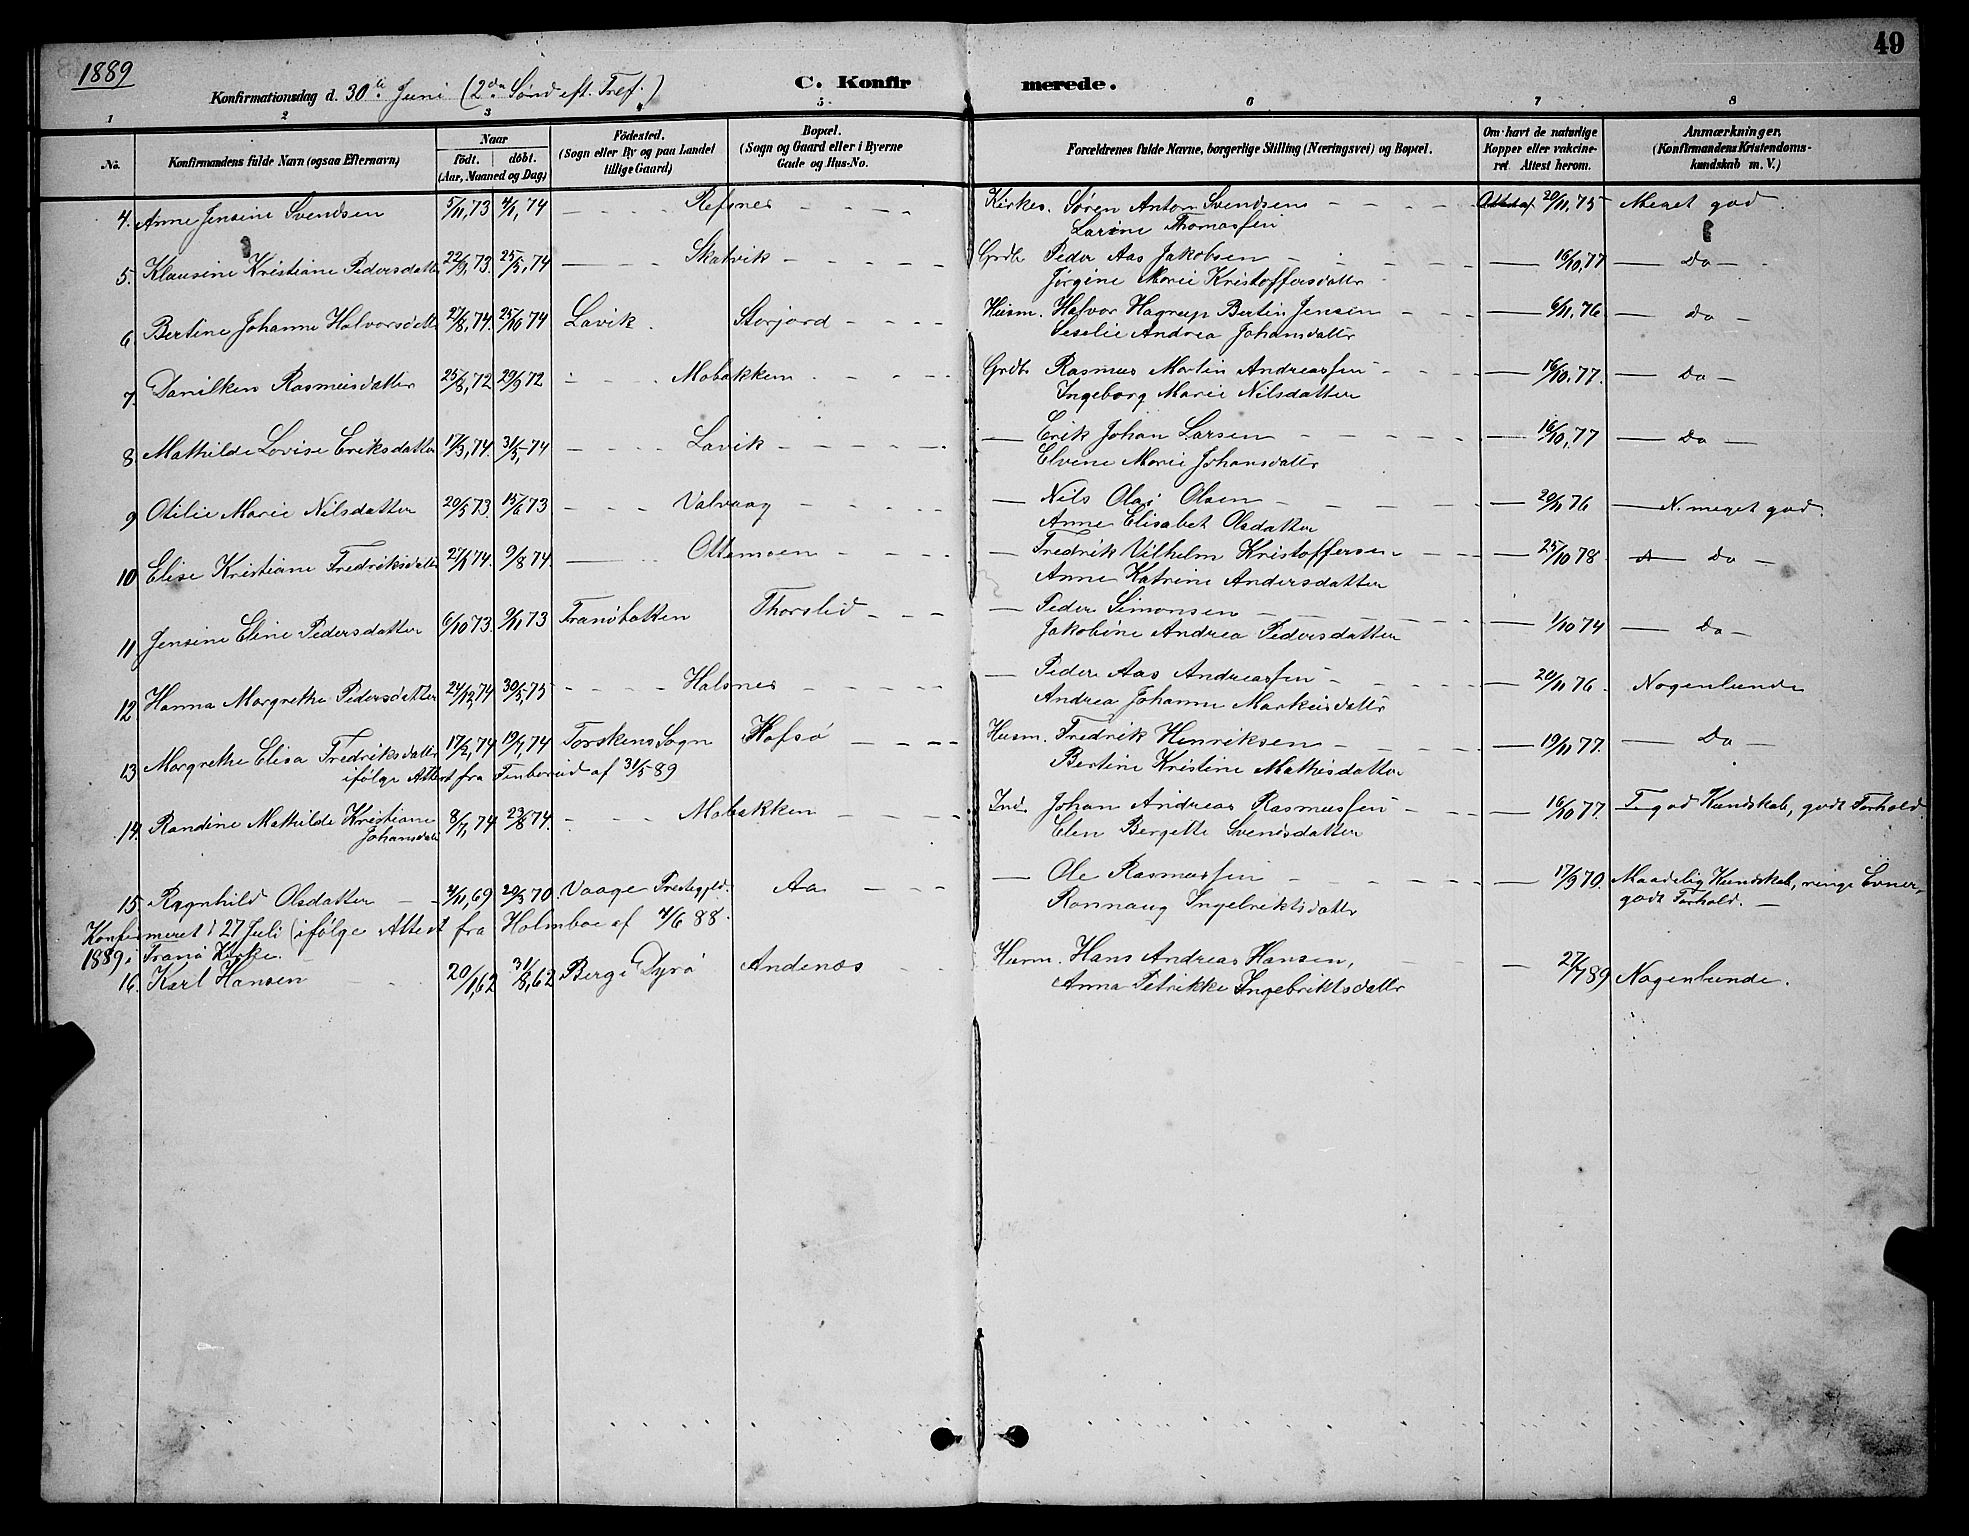 1889
49
Konfirmationsdag d. 30te Juni (2den Sønd eft. Tref.)
C. Konfirmerede.
1 2 3 4 5 6 7 8
No. Konfirmandens fulde Navn (ogsaa Efternavn) Naar födt. döbt. (Aar, Maaned og Dag) Födested. (Sogn eller By og paa Landet tillige Gaard) Bopæl. (Sogn og Gaard eller i Byerne Gade og Hus-No. Forældrenes fulde Navne, borgerlige Stilling (Næringsvei) og Bopæl. Om havt de naturlige Kopper eller vakcineret. Attest herom. Anmærkninger. (Konfirmandens Kristendomskundskab m. V.)
4. Anne Jensine Svendsen 5/11,73 4/1,74 Refsnes Kirkes. Søren Anton Svendsen Attest af 20/11,75 Meget god.
Larine Thomassen
5. Klausine Kristiane Pedersdatter 22/9,73. 25/5,74 Skatvik Grdbr Peder Aas Jakobsen 16/10,77 — Do —
Jørgine Marie Kristoffersdatter
6. Bertine Johanne Halvorsdatter 27/8,74. 25/10 74 Lavik. Storjord Husm. Halvor Hagrup Bertin Jensen 6/11,76. — Do —
Seselie Andrea Johansdatter
7. Danilken Rasmusdatter 25/8,72 29/9 72 Mobakken Grdbr Rasmus Martin Andreassen 16/10,77. — Do —
Ingeborg Marie Nilsdatter
8. Mathilde Lovise Eriksdatter 17/3,74. 31/5,74 Lavik — Erik Johan Larsen 16/10,77 — Do —
Elvine Marie Johansdatter
9. Otilie Marie Nilsdatter 20/5 73. 15/6 73 Valvaag — Nils Olai Olsen 20/11 76 — N. meget god.
Anne Elisabet Olsdatter
10. Elise Kristiane Fredriksdatter 27/1 74. 9/8 74. Ottemoen — Fredrik Vilhelm Kristoffersen 25/10 78 — Do —
Anne Katrine Andersdatter
11. Jensine Eline Pedersdatter 6/10 73. 9/11 73 Tranøbotten Thorslid — Peder Simonsen 1/10 74 — Do —
Jakobine Andrea Pedersdatter
12. Hanna Margrethe Pedersdatter 24/12,74 30/5,75 Halsnes — Peder Aas Andreassen 20/11 76. Nogenlunde
Andrea Johanne Markusdatter
13. Margrethe Elisa Fredriksdatter 17/2,74 19/4,74 Torskens Sogn Hofsø Husm. Fredrik Henriksen 19/11 77. — Do —
ifølge Attest fra af 31/5 89 Bertine Kristine Mathisdatter
14. Randine Mathilde Kristiane 8/7,74 23/8 74. Mobakken Ind. Johan Andreas Rasmussen 16/10 77. T. god Kundskab, godt Forhold.
Johansdatter Elen Bergette Svenisdatter
15. Ragnhild Olsdatter 4/11,69 20/3 70. Vaage Prestegjeld. Aa — Ole Rasmussen 17/9 70. Maadelig Kundskab, ringe Evner,
Rannaug Ingebriktsdatter godt Forhold. —
Konfirmeret d 27 Juli (ifølge Attest fra Holmboe af 4/6 88.
1889 i Tranø Kirke.
16. Karl Hansen 20/1,62 31/8,62 Berg i Dyrø Andenæs Husm. Hans Andreas Hansen, 27/7 89 Nogenlunde.
Anna Petrikke Ingebriktsdatter